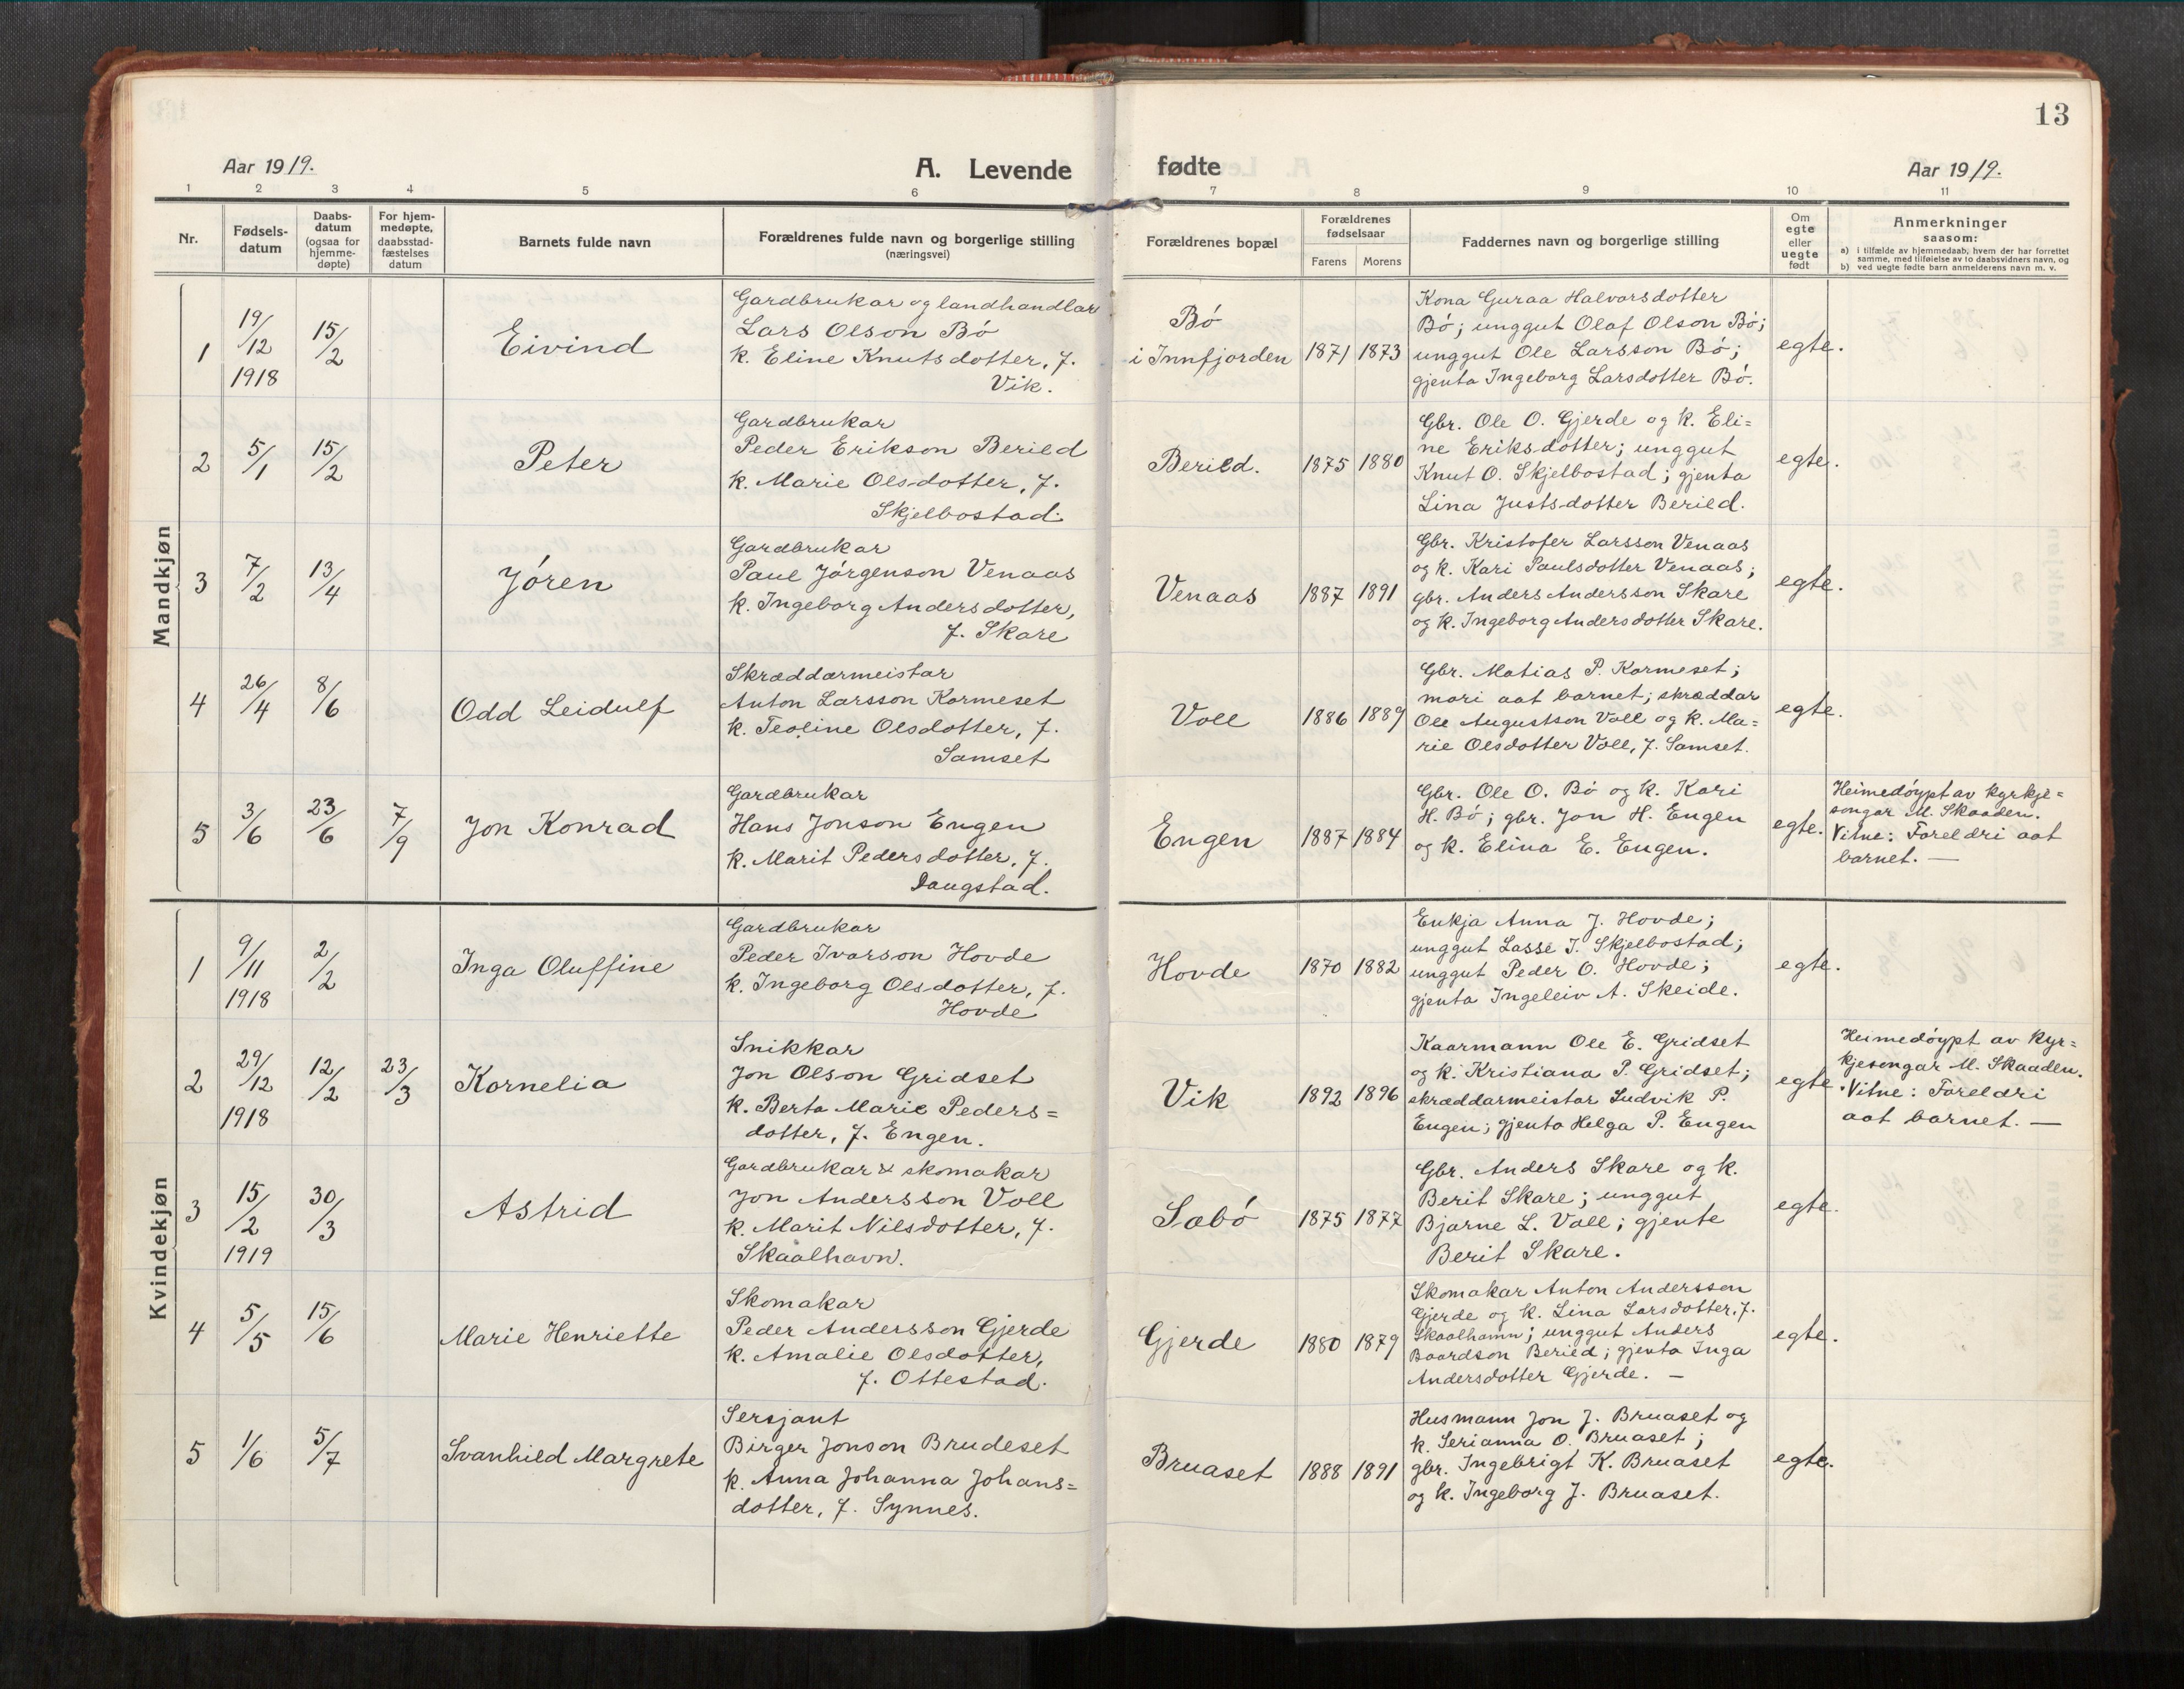 13
Aar 1919.
A. Levende fødte
Aar 1919.
1 2 3 4 5 6 7 8 9 10 11
Nr.
Fødsels-
datum
Daabs-
datum
(ogsaa for
hjemme-
døpte)
For hjem-
medøpte,
daabsstad-
fæstelses
datum
Barnets fulde navn
Forældrenes fulde navn og borgerlige stilling
(næringsvei)
Forældrenes bopæl
Forældrenes
fødselsaar
Farens Morens
Faddernes navn og borgerlige stilling
Om
egte
eller
uegte
født
Anmerkninger
saasom:
a) i tilfælde av hjemmedaab, hvem der har forrettet
samme, med tilføielse av to daabsvidners navn, og
b) ved uegte fødte barn anmelderens navn m. v.
Mandkjøn
1
19/12
1918
15/2
Eivind
Gardbrukar og landhandlar
Lars Olson Bó
k. Eline Knutsdotter, f.
Vik.
Bó
i Innfjorden
1871 1873
Kona Guraa Halvorsdotter
Bó; unggut Olaf Olson Bó;
unggut Ole Larsson Bó;
gjenta Ingeborg Larsdotter Bó.
egte.
2
5/1
15/2
Peter
Gardbrukar
Peder Erikson Berild
k. Marie Olsdotter, f.
Skjelbostad.
Berild.
1875 1880
Gbr. Ole O. Gjerde og k. Eli=
ne Eriksdotter; unggut
Knut O. Skjelbostad; gjenta
Lina Justsdotter Berild.
egte.
3
7/2
13/4
Jóren
Gardbrukar
Paul Jórgenson Venaas
k. Ingeborg Andersdotter,
f. Skare
Venaas
1887 1891
Gbr. Kristofer Larsson Venaas
og k. Kari Paulsdotter Venaas;
gbr. Anders Andersson Skare
og k. Ingeborg Andersdotter Skare.
egte.
4
26/4
8/6
Odd Leidulf
Skræddarmeistar
Anton Larsson Kormeset
k. Teoline Olsdotter, f.
Samset
Voll
1886 1889
Gbr. Matias P. Kormeset;
mori aat barnet; skræddar
Ole Augustson Voll og k. Ma=
rie Olsdotter Voll, f. Samset.
egte.
5
3/6
23/6
7/9
Jon Konrad
Gardbrukar
Hans Jonson Engen
k. Marit Pedersdotter, f.
Daugstad.
Engen
1887 1884
Gbr. Ole O. Bó og k. Kari
H. Bó; gbr. Jon H. Engen
og k. Elina E. Engen.
egte.
Heimedóypt av kyrkje=
songar M. Skaaden.
Vitne: Foreldri aat
barnet. —
Kvindekjøn
1
9/11
1918
2/2
Inga Oluffine
Gardbrukar
Peder Ivarson Hovde
k. Ingeborg Olsdotter, f.
Hovde
Hovde
1870 1882
Enkja Anna J. Hovde;
unggut Lasse I. Skjelbostad;
unggut Peder O. Hovde;
gjenta Ingeleiv A. Skeide.
egte.
2
29/12
1918
12/2
23/3
Kornelia
Snikkar
Jon Olson Gridset
k. Berta Marie Peders=
dotter, f. Engen.
Vik
1892 1896
Kaarmann Ole E. Gridset
og k. Kristiana P. Gridset;
skræddarmeistar Ludvik P.
Engen; gjenta Helga P. Engen
egte.
Heimedóypt av kyr=
kjesongar M. Skaaden.
Vitne: Foreldri
aat barnet. —
3
15/2
1919
30/3
Astrid
Gardbrukar & skomakar
Jon Andersson Voll
k. Marit Nilsdotter, f.
Skaalhavn.
Sæbó
1875 1877
Gbr. Anders Skare og k.
Berit Skare; unggut
Bjarne L. Voll; gjente
Berit Skare.
egte.
4
5/5
15/6
Marie Henriette
Skomakar
Peder Andersson Gjerde
k. Amalie Olsdotter,
f. Ottestad.
Gjerde
1880 1879
Skomakar Anton Andersson
Gjerde og k. Lina Larsdotter, f.
Skaalhamn; unggut Anders
Baardson Berild; gjenta Inga
Andersdotter Gjerde. —
egte.
5
1/6
5/7
Svanhild Margrete
Sersjant
Birger Jonson Brudeset
k. Anna Johanna Johans=
dotter, f. Synnes.
Bruaset
1888 1891
Husmann Jon J. Bruaset og
k. Serianna O. Bruaset;
gbr. Ingebrigt K. Bruaset
og k. Ingeborg J. Bruaset.
egte.